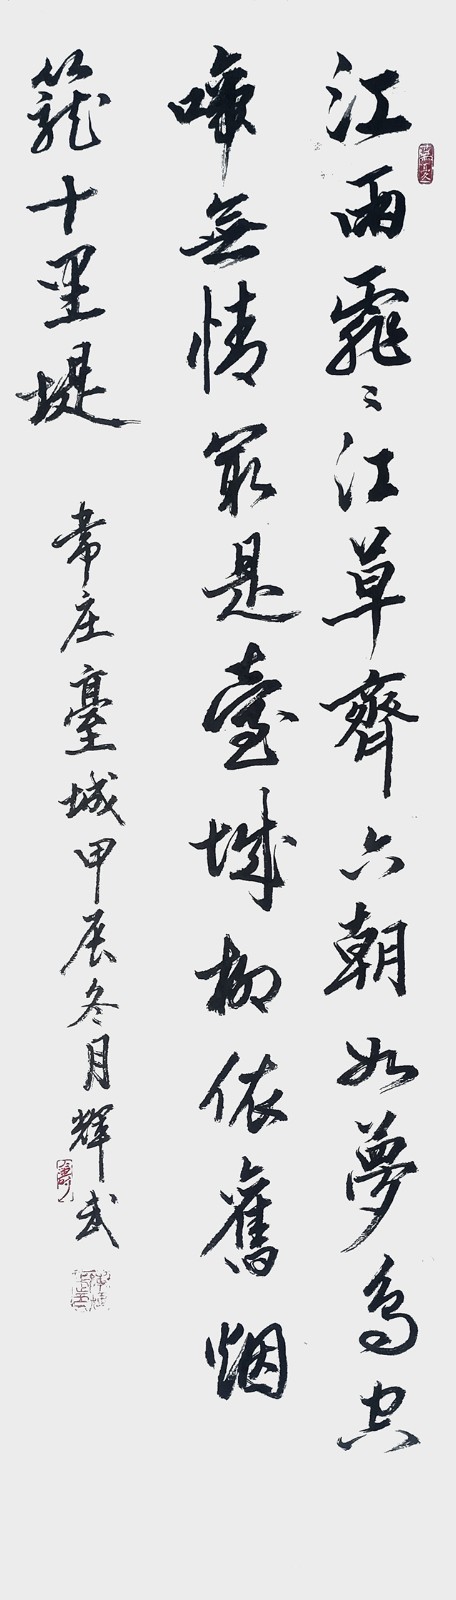 江雨霏〻江草齊六朝如夢鳥空
啼無情最是臺城柳依舊烟
籠十里堤
韋庄臺城甲辰冬月輝武